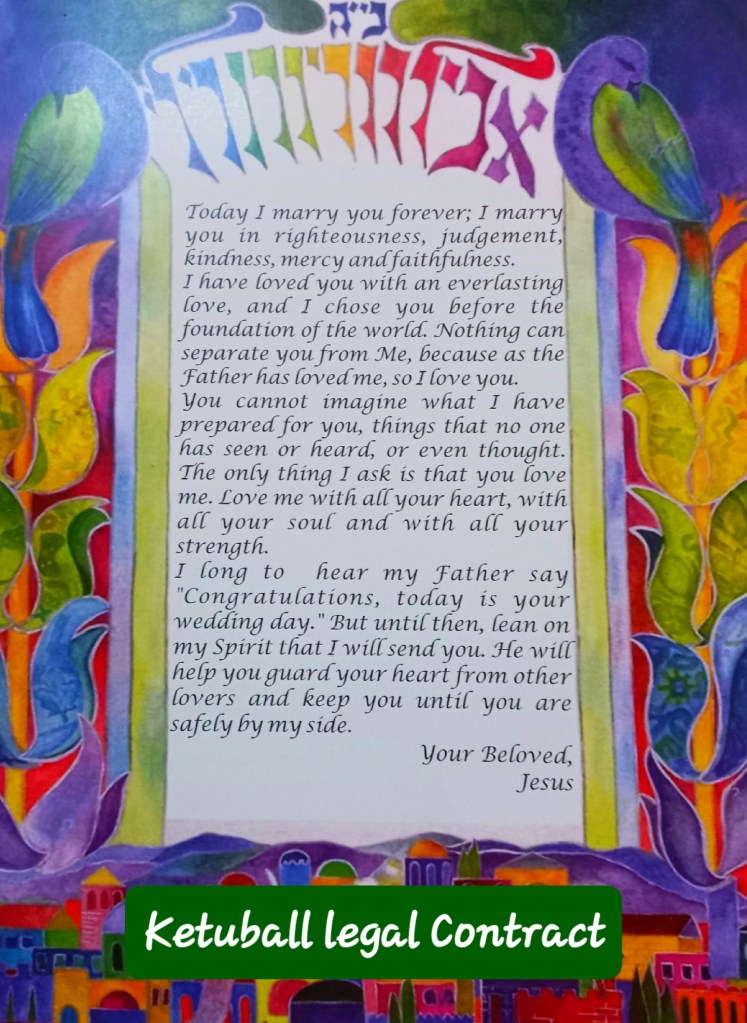 ב״ה
אני לדודי ודודי לי
Today I marry you forever; I marry
you in righteousness, judgement,
kindness, mercy and faithfulness.
I have loved you with an everlasting
love, and I chose you before the
foundation of the world. Nothing can
separate you from Me, because as the
Father has loved me, so I love you.
You cannot imagine what I have
prepared for you, things that no one
has seen or heard, or even thought.
The only thing I ask is that you love
me. Love me with all your heart, with
all your soul and with all your
strength.
I long to hear my Father say
"Congratulations, today is your
wedding day." But until then, lean on
my Spirit that I will send you. He will
help you guard your heart from other
lovers and keep you until you are
safely by my side.
Your Beloved,
Jesus
Ketuball legal Contract